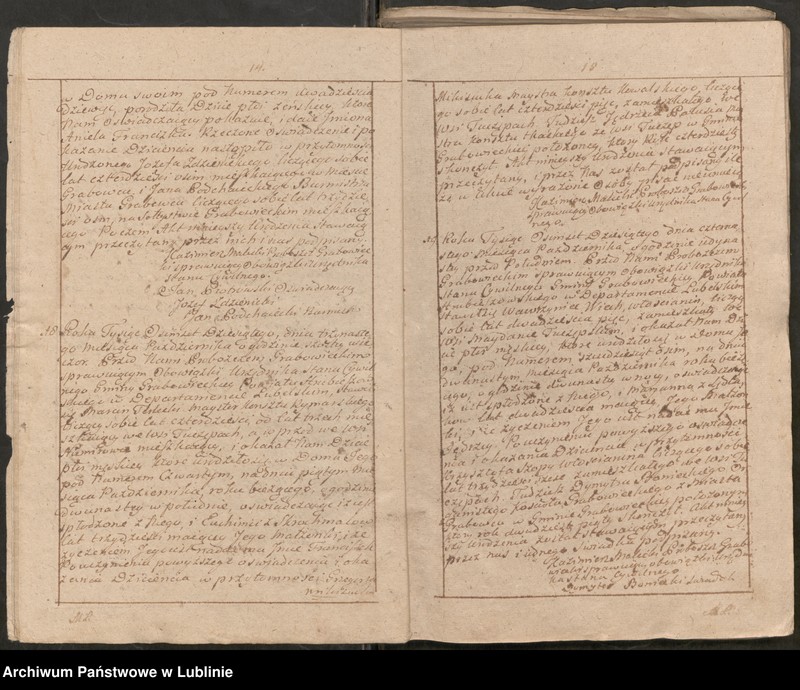 14.
w Domu swoim pod Numerem dwadzieścia
dziewięć, porodziła Dziecie płci żeńskiey, które
Nam oświadczaiący pokazuie, i daie Imiona
Aniela Franciszka. Rzeczone oświadczenie i po
kazanie Dziecięcia nastąpiło w przytomności
Jozefa Zdzienickiego liczącego sobie
lat czterdzieści ośm mieszkaiącego w Mieście
Grabowcu, i Jana Podchaeckiego Burmistrza
Miasta Grabowca liczącego sobie lat trzydzie
ści ośm, na Grabowieckim mieszkaią
cego. Poczem Akt ninieyszy Urodzenia Stawaią
cym przeczytany przez nich i nas podpisany.
Kazimierz Malicki Proboszcz Grabowie
cki sprawuiący Obowiązki Urzędnika
Stanu Cywilnego.
Jan Oświadczaiący
Jozef Zdzienicki
Jan Podchaecki Burmistrz
18 Roku Tysiąc Ośmset Dziesiątego, dnia trzynaste
go Miesiąca Października o godzinie szóstey wie
czor. Przed Nami Proboszczem Grabowieckim
sprawuiącym Obowiązki Urzędnika Stanu Cywil
nego Gminy Grabowieckiey Powiatu
w Departamencie Lubelskim, Stawi
ł się Marcin magister konsztu Rymarskiego
liczący sobie lat czterdzieści, od lat trzech mie
szkaiący we wsi Tuczępach, a w przód we wsi
mieszkaiący, i okazał Nam Dziecie
płci męskiey, które urodziło się w Domu Jego
pod Numerem Czwartym, na dniu piątym Mie
siąca Października, roku bieżącego, o godzinie
dwunastey w południe, oświadczaiąc iż iest
spłodzone z Niego, i Eufemii z
lat trzydzieści maiącey Jego Małżonki, i że
życzeniem Jego iest nadać mu Imie Franciszek
Po uczynieniu powyższego oświadczenia i oka
zania Dziecięcia w przytomności Grzegorza
18
Magistra konsztu Kowalskiego, liczące
go sobie lat czterdzieści pięć, zamieszkałego we
wsi Tuczępach. Tudzież Jędrzeia Palusia Ma
istra konsztu tkackiego ze wsi Tuczęp w Gminie
Grabowieckiey położoney, który Rok czterdziesty
skończył. Akt ninieyszy Urodzenia stawaiącym
przeczytany, i przez Nas został podpisany gdy
że w Akcie wyrażone Osoby pisać nieumieią.
Kazimierz Malicki Proboszcz Grabowiecki
sprawuiący Obowiązki Urzędnika Stanu Cywil
nego.
19 Roku Tysiąc Ośmset Dziesiątego dnia czterna
stego Miesiąca Października o godzinie iedyna
stey przed Południem. Przed Nami Proboszczem
Grabowieckim sprawuiącym Obowiązki Urzędnika
Stanu Cywilnego Gminy Grabowieckiey Powiatu
w Departamencie Lubelskim
Stawił się Wawrzyniec włościanin, liczący
sobie lat dwadzieścia pięć, zamieszkały we
wsi Maydanie Tuczępskim, i okazał Nam Dzie
cie płci męskiey, które urodziło się w Domu Je
go, pod Numerem sześćdziesiąt ośm, na dniu
dwunastym, Miesiąca Października roku bieżą
cego, o godzinie dwunastey w nocy, oświadczaiąc
iż iest spłodzone z Niego, i Maryanny z
lat dwadzieścia maiącey Jego Małżon
ki, i że życzeniem Jego iest nadać mu Imie
Jędrzey. Po uczynieniu powyższego oświadcze
nia i okazania Dziecięcia w przytomności
Krzysztofa włościanina liczącego sobie
lat trzydzieści sześć zamieszkałego we wsi Tu
czępach. Tudzież Dymitra Or
ganisty kościoła Grabowieckiego z Miasta
Grabowca w Gminie Grabowieckiey położonym
który rok dwudziesty piąty skończył. Akt niniey
szy urodzenia został Stawaiącym przeczytany,
przez nas i iednego świadka podpisany.
Kazimierz Malicki Proboszcz Grabo
wiecki sprawuiący obowiązki Urzędni
ka Stanu Cywilnego
Dymytr świadek
Archiwum Państwowe w Lublinie